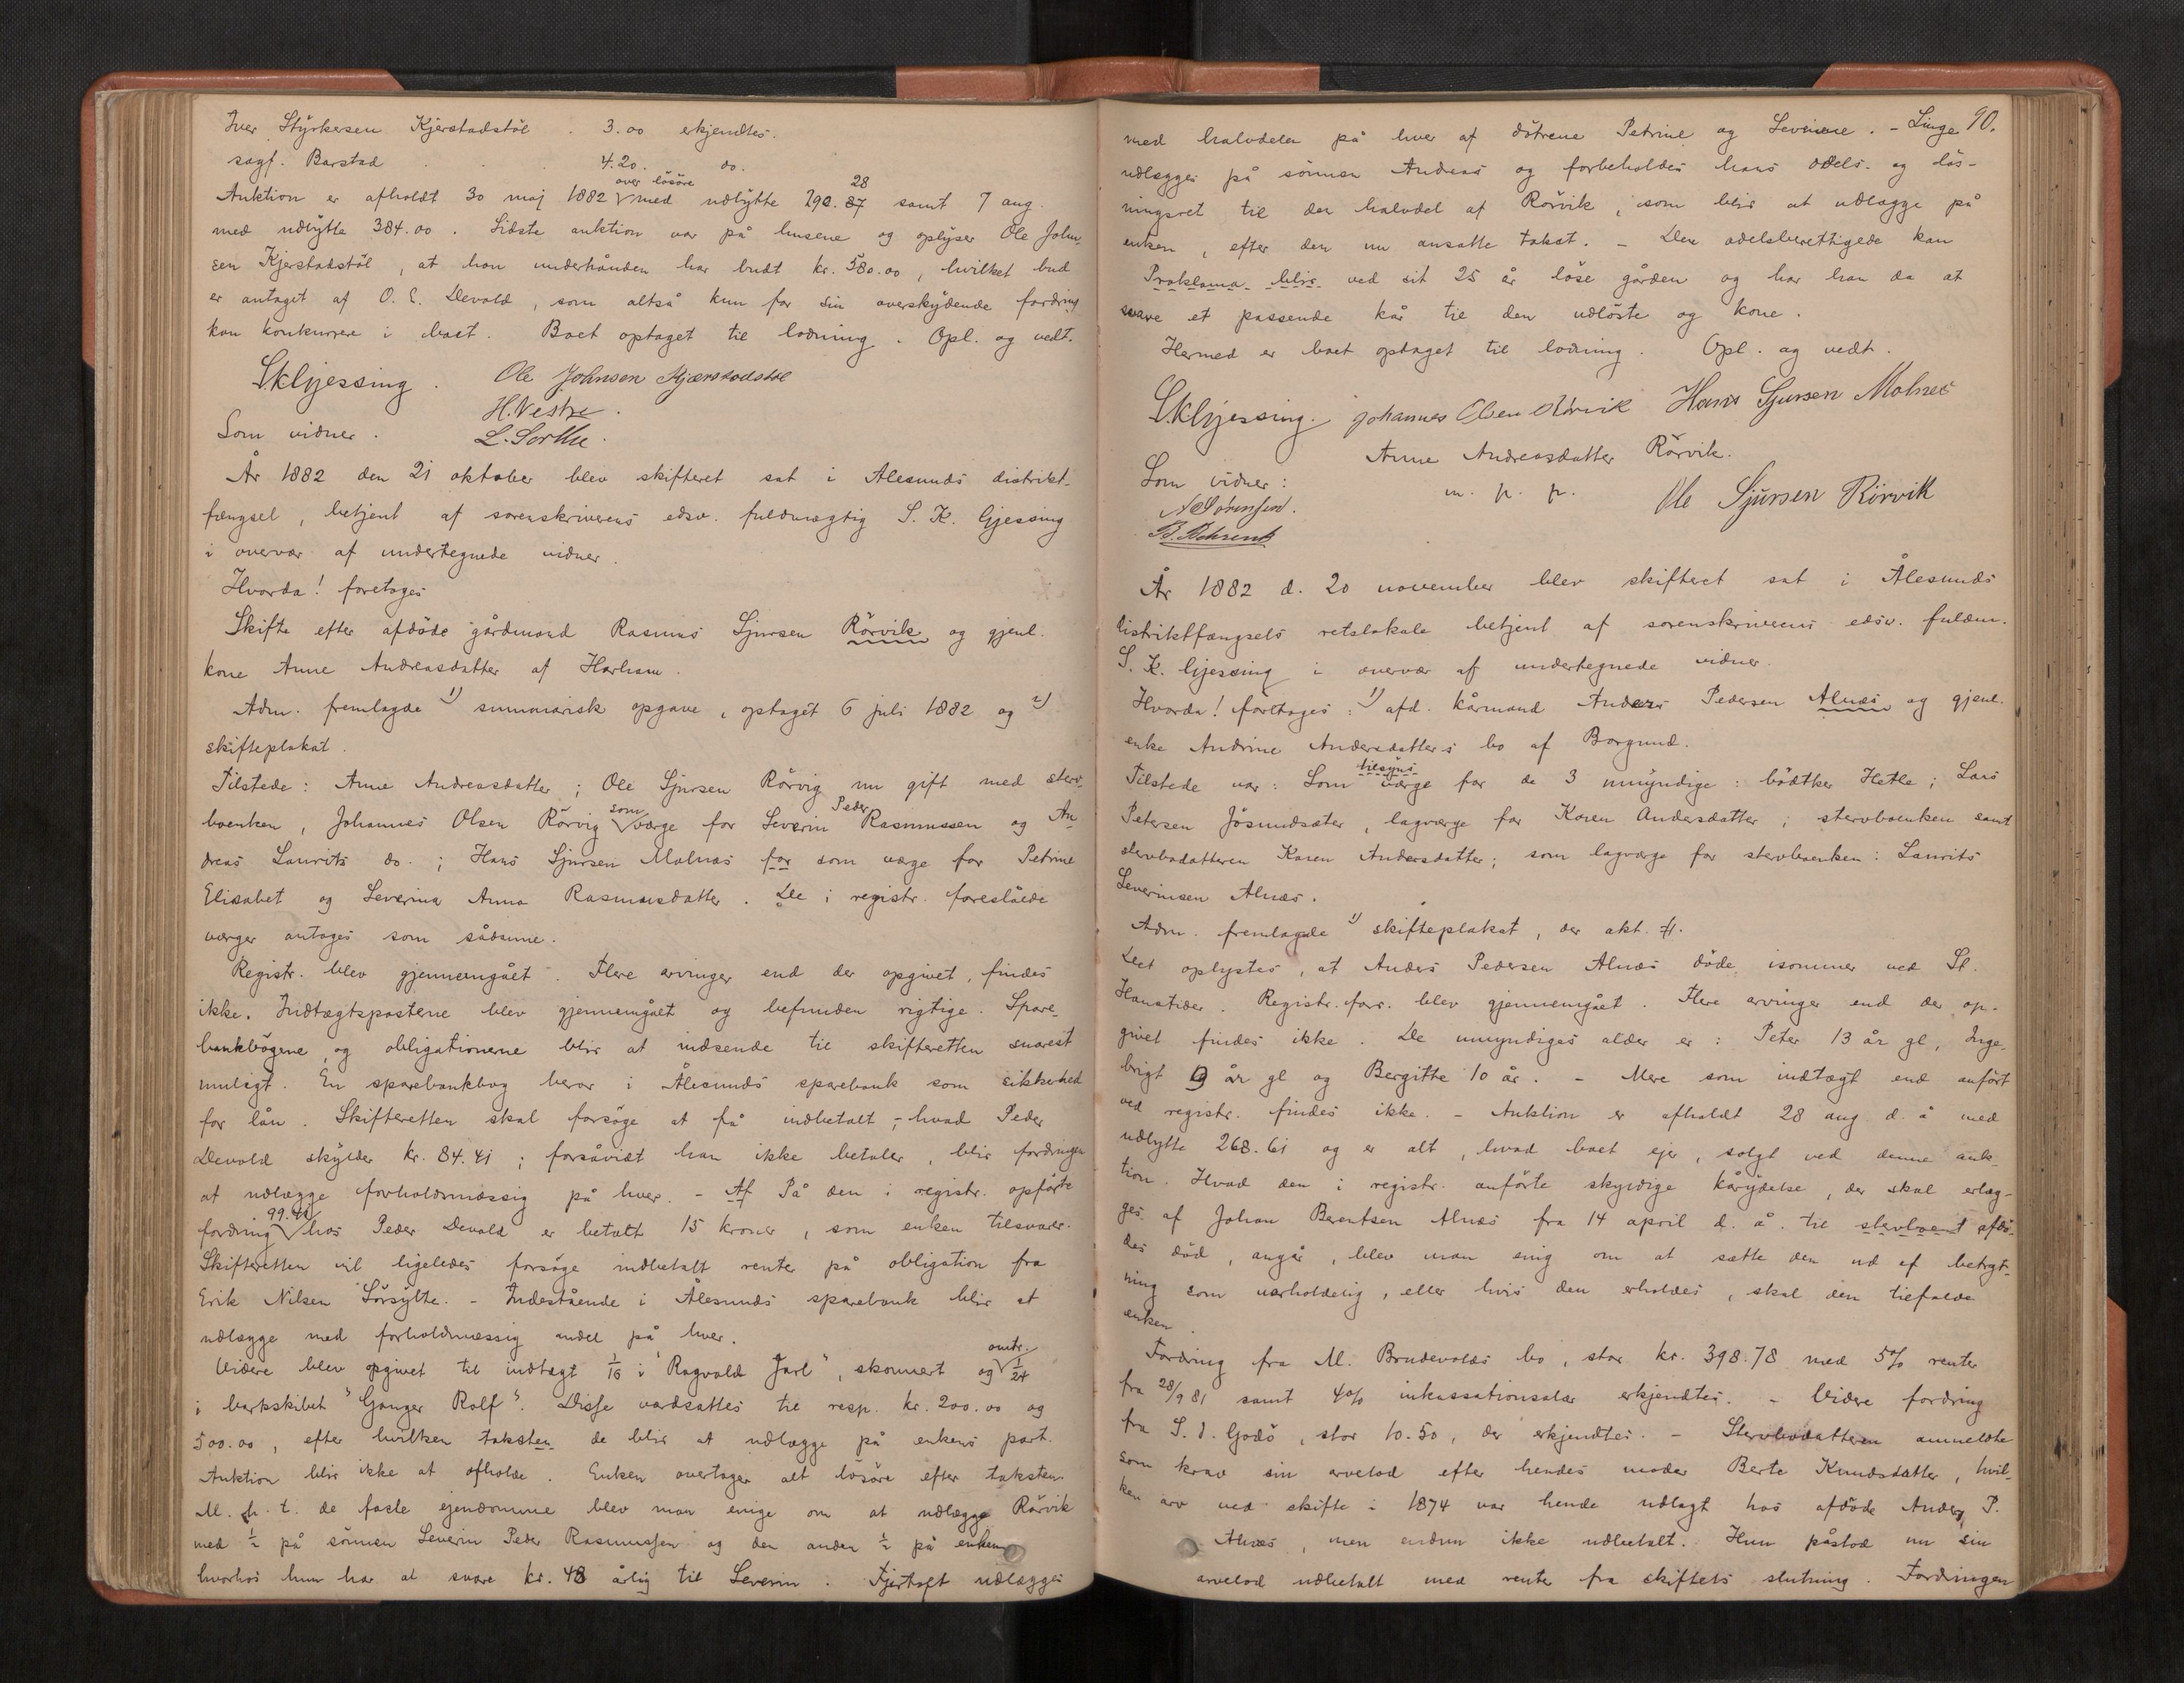 Iver Styrkersen Kjerstadstöl . 3.00 erkjendtes.
sagf. Barstad . . . 4.20. do.
over lösöre 28
Auktion er afholdt 30 maj 1882 med udbytte 292.87 samt 7 aug.
med udbytte 384.00. Sidste auktion var på husene og oplyser Ole John-
sen Kjerstadstöl, at han underhånden har budt kr. 580.00, hvilket bud
er antaget af O. E. Devold, som altså kun for sin overskydende fordring
kan konkurrere i boet. Boet optaget til lodning. Opl. og vedt.
S K Gjessing. Ole Johnsen Kjærstadstöl
H. Nestre.
Som vidner. L. Sorthe.
År 1882 den 21 oktober blev skifteret sat i Alesunds distrikt-
fængsel, betjent af sorenskriverens edsv. fuldmægtig S. K. Gjessing
i overvær af undertegnede vidner.
Hvorda! foretoges
Skifte efter afdöde gårdmand Rasmus Sjursen Rörvik og gjenl.
kone Anne Andreasdatter af Harham.
Adm. fremlagde 1) summarisk opgave, optaget 6 juli 1882 og 2)
skifteplakat.
Tilstede: Anne Andreasdatter; Ole Sjursen Rörvig nu gift med sterv-
som Peder
boenken, Johannes Olsen Rörvig værge for Severin Rasmussen og An-
dreas Laurits do.; Hans Sjursen Molnæs for som værge for Petrine
Elisabet og Severina Anna Rasmusdatter. De i registr. foreslåede
værger antages som sådanne.
Registr. blev gjennemgået. Flere arvinger end der opgivet, findes
ikke. Indtægtsposterne blev gjennemgået og befunden rigtige. Spare-
bankbögene og obligationerne blir at indsende til skifteretten snarest
muligt. En sparebankbog beror i Ålesunds sparebank som sikkerhed
for lån. Skifteretten skal forsöge at få indbetalt, hvad Peder
Devold skylder kr. 84.41; forsåvidt han ikke betaler, blir fordringen
at udlægge forholdsmæssig på hver. - Af På den i registr. opförte
99.41
fordring hos Peder Devold er betalt 15 kroner, som enken tilsvarer.
Skifteretten vil ligeledes forsöge indbetalt renter på obligation fra
Erik Nilsen Sörsylte. - Indestående i Ålesunds sparebank blir at
udlægge med forholdmæssig andel på hver.
omtr.
Videre blev opgivet til indtægt 1/16 i "Ragvald Jarl", skonnert og 1/24
i barkskibet "Ganger Rolf". Disse værdsattes til resp. kr. 200.00 og
500.00, efter hvilken taksten de blir at udlægge på enkens part.
Auktion blir ikke at afholde. Enken overtager alt lösöre efter taksten.
M. h. t. de faste ejendomme blev man enige om at udlægge Rörvik
med 1/2 på sönnen Severin Peder Rasmussen og den anden 1/2 på enken
hvorhos hun har at svare kr. 48 årlig til Severin. Fjertoft udlægges
90.
med halvdelen på hver af döttrene Petrine og Severine. - Linge
udlægges på sönnen Andreas og forbeholdes hans odels- og lös-
ningsret til den halvdel af Rörvik, som blir at udlægge på
enken, efter den nu ansatte takst. - Den odelsberettigede kan
Proklama blir ved sit 25 år löse gården og har han da at
svare et passende kår til den udlöste og kone.
Hermed er boet optaget til lodning. Opl. og vedt.
S K Gjessing. Johannes Olsen Rörvik Hans Sjursen Molnes
Anne Andreasdatter Rörvik.
Som vidner: m. p. p. Ole Sjursen Rörvik
B. Behrent
År 1882 d. 20 november blev skifteret sat i Ålesunds
distriktfængsels retslokale betjent af sorenskriverens edsv. fuldm.
S. K. Gjessing i overvær af undertegnede vidner.
Hvorda! foretoges: 1) afd. kårmand Anders Pedersen Alnæs og gjenl.
enke Andrine Andersdatters bo af Borgund.
tilsyns
Tilstede var: Som værge for de 3 umyndige: bödtker Hetle; Lars
Petersen Jösundsæter, lagværge for Karen Andersdatter; stervboenken samt
stervbodatteren Karen Andersdatter; som lagværge for stervboenken: Laurits
Severinsen Alnæs.
Adm. fremlagde 1) skifteplakat, der akt. #.
Det oplystes, at Anders Pedersen Alnæs döde isommer ved St.
Hanstider. Registr.forr. blev gjennemgået. Flere arvinger end der op-
givet findes ikke. De umyndiges alder er: Peter 13 år gl, Inge-
brigt 9 år gl og Bergitte 10 år. - Mere som indtægt end anfört
ved registr. findes ikke. - Auktion er afholdt 28 aug. d. å med
udbytte 268.61 og er alt, hvad boet ejer, solgt ved denne auk-
tion. Hvad den i registr. anförte skyldige kårydelse, der skal erlæg-
ges af Johan Berentsen Alnæs fra 14 april d. å. til stervboent afdö-
des död, angår, blev man enig om at sætte den ud af betragt-
ning som uerholdelig, eller hvis den erholdes, skal den tilfalde
enken.
Fordring fra M. Brudevolds bo, stor kr. 398.78 med 5% renter
fra 28/9 81 samt 4% inkassationssalær erkjendtes. - Videre fordring
fra S. J. Godö, stor 10.50, der erkjendtes. - Stervbodatteren anmeldte
som krav sin arvelod efter hendes moder Berte Knudsdatter, hvil-
ken arv ved skifte i 1874 var hende udlagt hos afdöde Anders P.
Alnæs, men endnu ikke udbetalt. Hun påstod nu sin
arvelod udbetalt med rente fra skiftets slutning. Fordringen